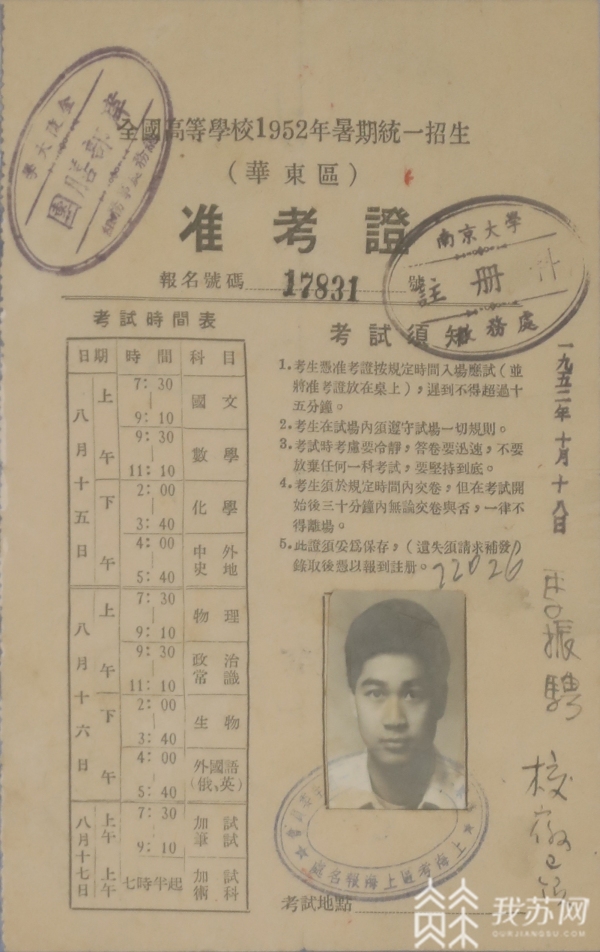 全國高等學校1952年暑期統一招生
(華東區)
准考證
報名號碼 17831 號
金陵大學
南京大學
註冊
教務處
考試時間表
日期 時間 科目
八月十五日 上午 7:30—9:10 國文
9:30—11:10 數學
下午 2:00—3:40 化學
4:00—5:40 中外史地
八月十六日 上午 7:30—9:10 物理
9:30—11:10 政治常識
下午 2:00—3:40 生物
4:00—5:40 外國語(俄、英)
八月十七日 上午 7:30—9:10 加試筆試
上午 七時半起 加試術科
考試須知
1.考生憑准考證按規定時間入場應試(並
將准考證放在桌上),遲到不得超過十
五分鐘。
2.考生在試場內須遵守試場一切規則。
3.考試時考慮要冷靜,答卷要迅速,不要
放棄任何一科考試,要堅持到底。
4.考生須於規定時間內交卷,但在考試開
始後三十分鐘內無論交卷與否,一律不
得離場。
5.此證須妥爲保存,(遺失須請求補發)
錄取後憑以報到註册。
22026
一九五二年十月十八日
振騁
校徽已領
上海考區上海報名處
考試地點
我苏网
OURJIANGSU.COM